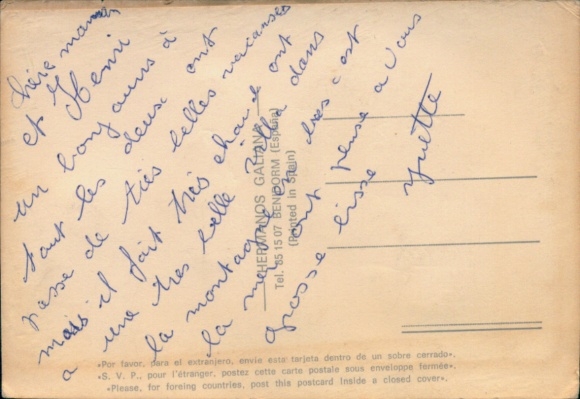 chère maman
et Henri
un bonjour à
tout les deux ont
passe de très belles vacances
mais il fait très chaud ont
a une très belle villa dans
la montagne et très c'est
la mer ont pense a vous
grosse bisse
Yvette
HERMANOS GALIANA
Tel. 85 15 07 BENIDORM (España)
(Printed in Spain)
«Por favor, para el extranjero, envíe esta tarjeta dentro de un sobre cerrado».
«S. V. P., pour l'étranger, postez cette carte postale sous enveloppe fermée».
«Please, for foreing countries, post this postcard inside a closed cover».